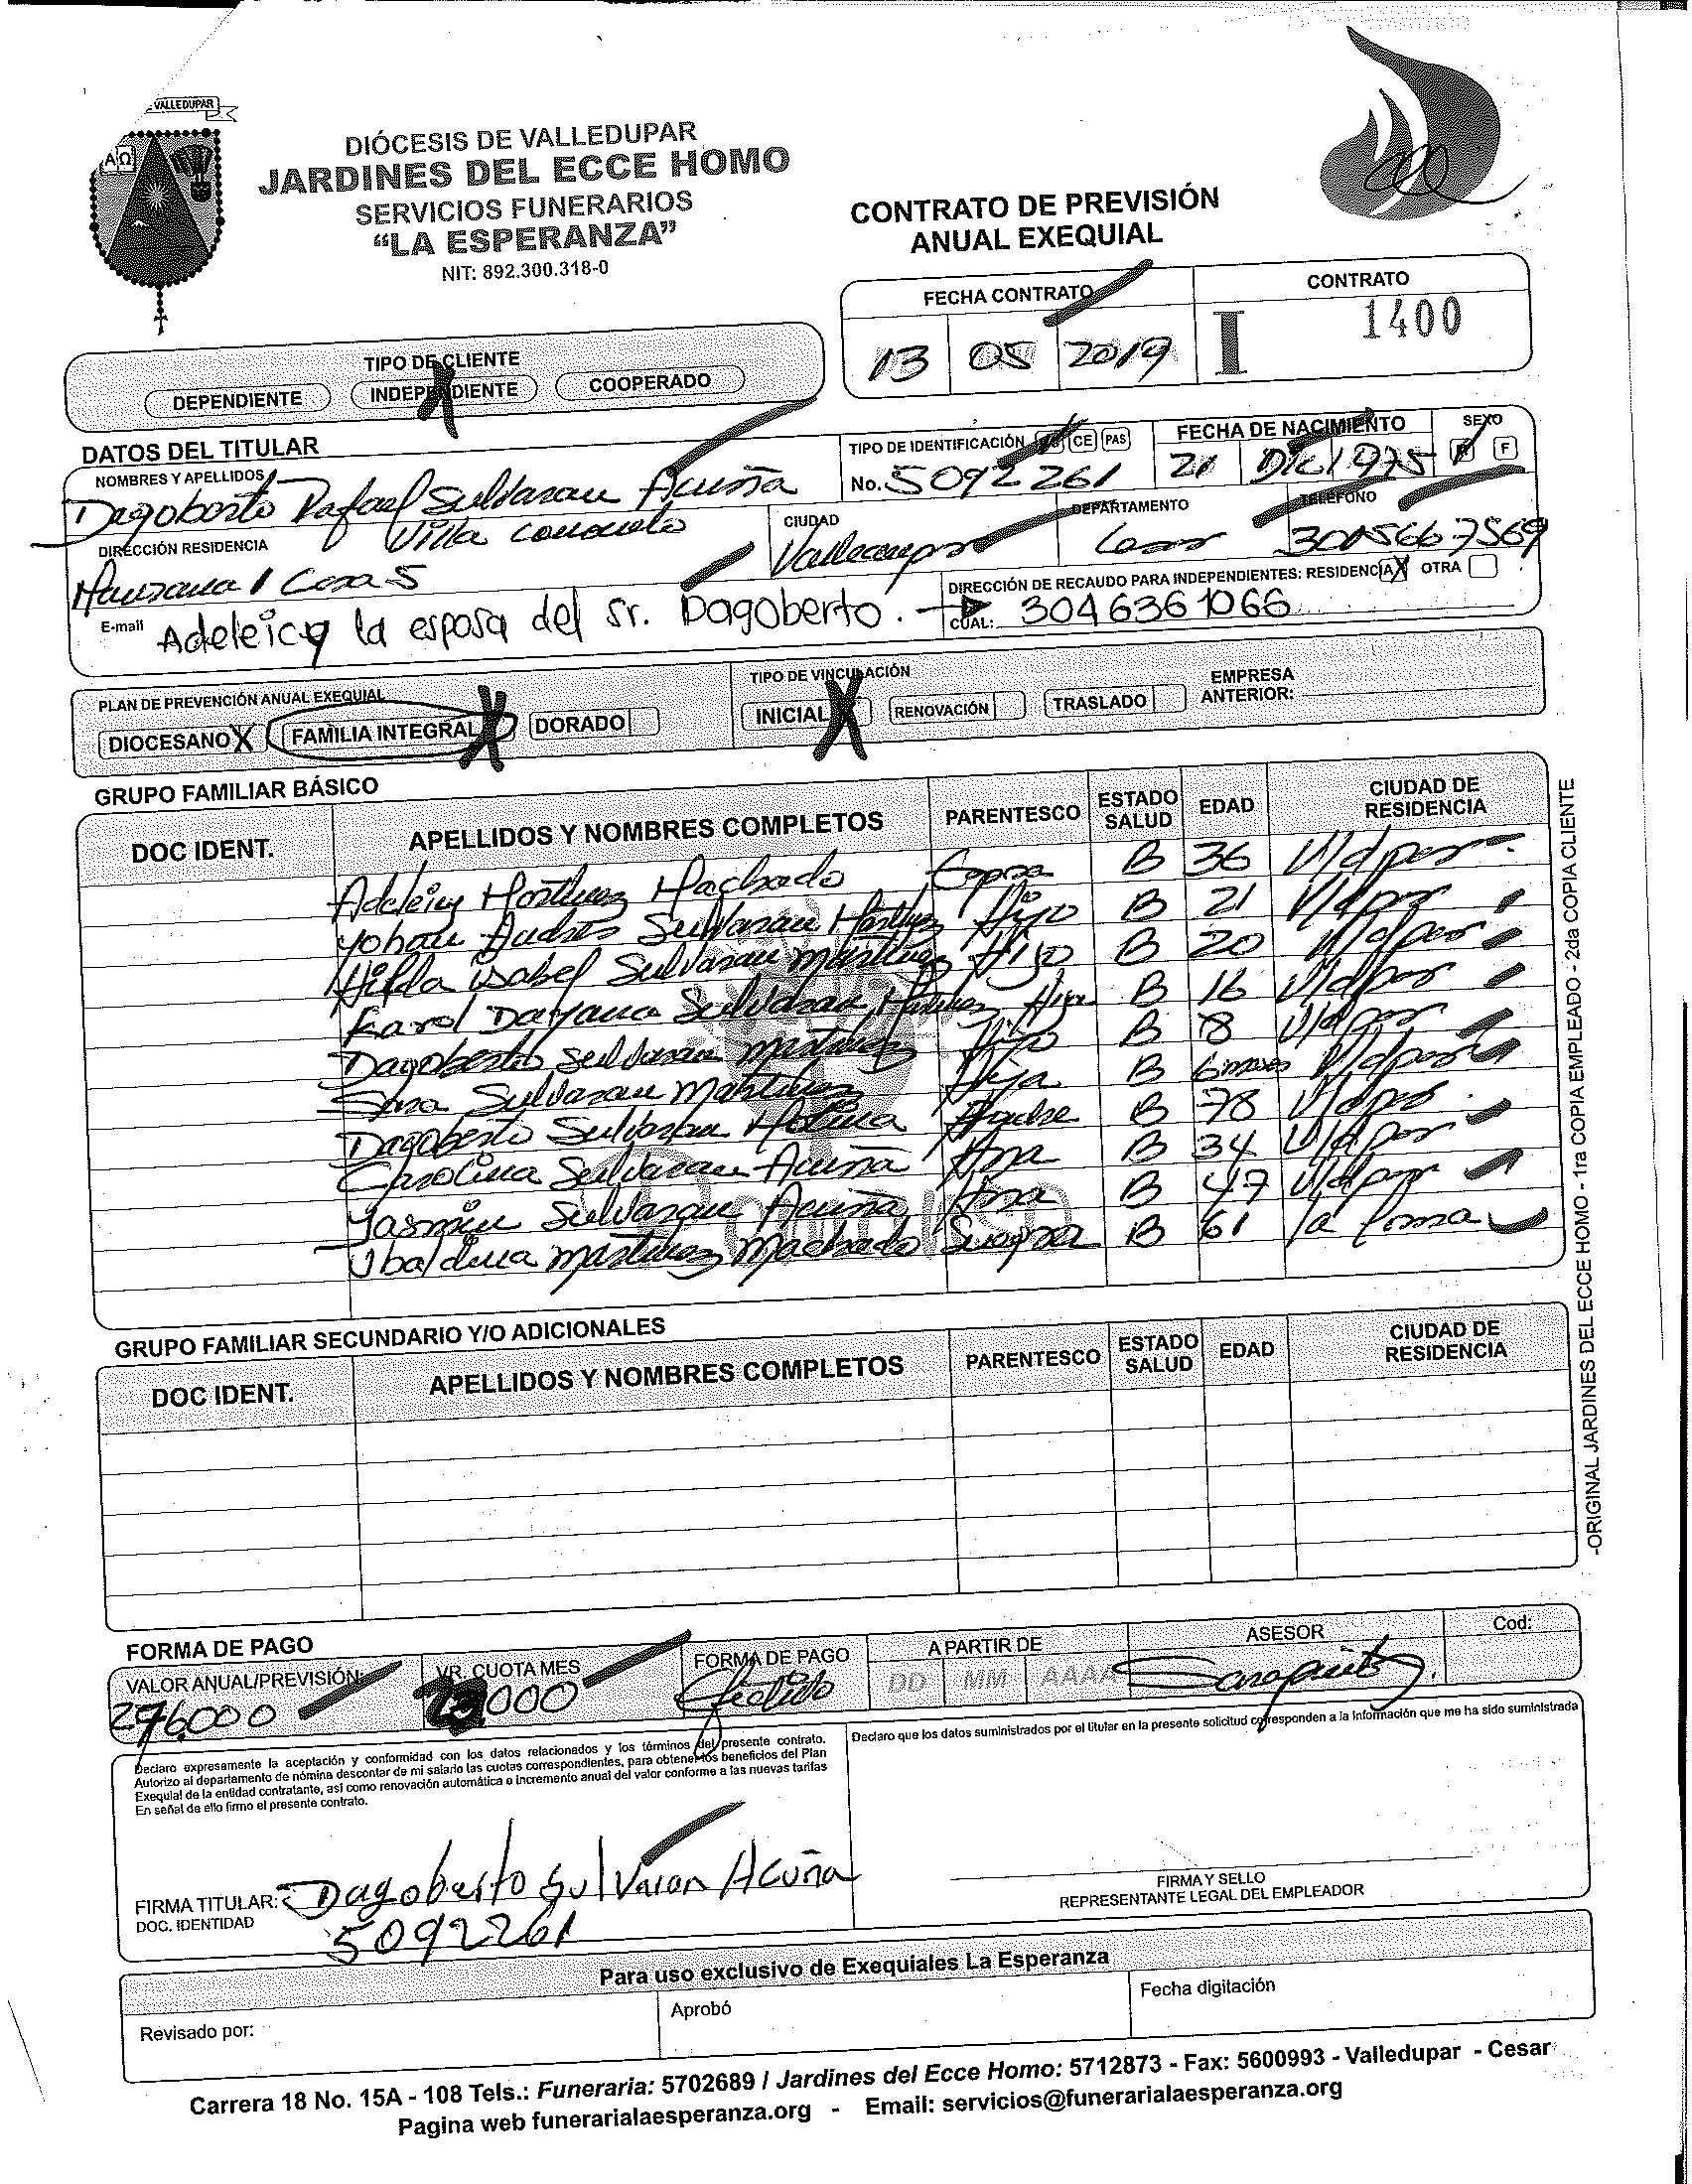 VALLEDUPAR
A Ω
DIÓCESIS DE VALLEDUPAR
JARDINES DEL ECCE HOMO
SERVICIOS FUNERARIOS
"LA ESPERANZA"
NIT: 892.300.318-0
CONTRATO DE PREVISIÓN
ANUAL EXEQUIAL
FECHA CONTRATO
CONTRATO
13 05 2019
I 1400
TIPO DE CLIENTE
DEPENDIENTE INDEPENDIENTE X COOPERADO
DATOS DEL TITULAR
TIPO DE IDENTIFICACIÓN CE PAS
FECHA DE NACIMIENTO
SEXO
NOMBRES Y APELLIDOS
Dagoberto Rafael Sulvaran Acuña
No. 5092261
21 Dic 1975
F
DIRECCIÓN RESIDENCIA
Villa Consuelo
Manzana 1 Casa 5
CIUDAD
Valledupar
DEPARTAMENTO
Cesar
TELÉFONO
3015667569
DIRECCIÓN DE RECAUDO PARA INDEPENDIENTES: RESIDENCIA X OTRA
E-mail Adeleicy la esposa del Sr. Dagoberto.
CUAL: 3046361066
PLAN DE PREVENCIÓN ANUAL EXEQUIAL
DIOCESANO X FAMILIA INTEGRAL X DORADO
TIPO DE VINCULACIÓN
INICIAL X RENOVACIÓN TRASLADO
EMPRESA
ANTERIOR:
GRUPO FAMILIAR BÁSICO
DOC IDENT. APELLIDOS Y NOMBRES COMPLETOS PARENTESCO ESTADO SALUD EDAD CIUDAD DE RESIDENCIA
Adeleicy Martinez Machado Esposa B 36 V/dpar
Yohan Andres Sulvaran Martinez Hijo B 21 V/dpar
Hilda isabel Sulvaran Martinez Hijo B 20 V/dpar
Karol Dayana Sulvaran Martinez Hija B 16 V/dpar
Dagoberto Sulvaran Martinez Hijo B 8 V/dpar
Sara Sulvaran Martinez Hija B 6 meses V/dpar
Dagoberto Sulvaran Molina Padre B 78 V/dpar
Carolina Sulvaran Acuña Hna B 34 V/dpar
Yasmin Sulvaran Acuña Hna B 47 V/dpar
Ubaldina Martinez Machado Suegra B 61 la loma
GRUPO FAMILIAR SECUNDARIO Y/O ADICIONALES
DOC IDENT. APELLIDOS Y NOMBRES COMPLETOS PARENTESCO ESTADO SALUD EDAD CIUDAD DE RESIDENCIA
-ORIGINAL JARDINES DEL ECCE HOMO - 1ra COPIA EMPLEADO - 2da COPIA CLIENTE
FORMA DE PAGO
VALOR ANUAL/PREVISIÓN:
276.000
VR. CUOTA MES
23000
FORMA DE PAGO
A PARTIR DE
DD MM AAAA
ASESOR
Cod:
Declaro expresamente la aceptación y conformidad con los datos relacionados y los términos del presente contrato.
Autorizo al departamento de nómina descontar de mi salario las cuotas correspondientes, para obtener los beneficios del Plan
Exequial de la entidad contratante, así como renovación automática e incremento anual del valor conforme a las nuevas tarifas
En señal de ello firmo el presente contrato.
Declaro que los datos suministrados por el titular en la presente solicitud corresponden a la información que me ha sido suministrada
FIRMA TITULAR: Dagoberto Sulvaran Acuña
DOC. IDENTIDAD
5092261
FIRMA Y SELLO
REPRESENTANTE LEGAL DEL EMPLEADOR
Para uso exclusivo de Exequiales La Esperanza
Revisado por:
Aprobó
Fecha digitación
Carrera 18 No. 15A - 108 Tels.: Funeraria: 5702689 / Jardines del Ecce Homo: 5712873 - Fax: 5600993 - Valledupar - Cesar
Pagina web funerarialaesperanza.org - Email: servicios@funerarialaesperanza.org